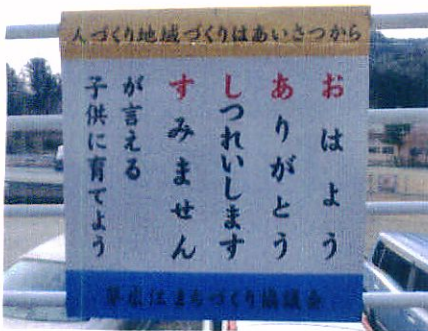 人づくり地域づくりはあいさつから
おはよう
ありがとう
しつれいします
すみません
が言える
子供に育てよう
まちづくり協議会